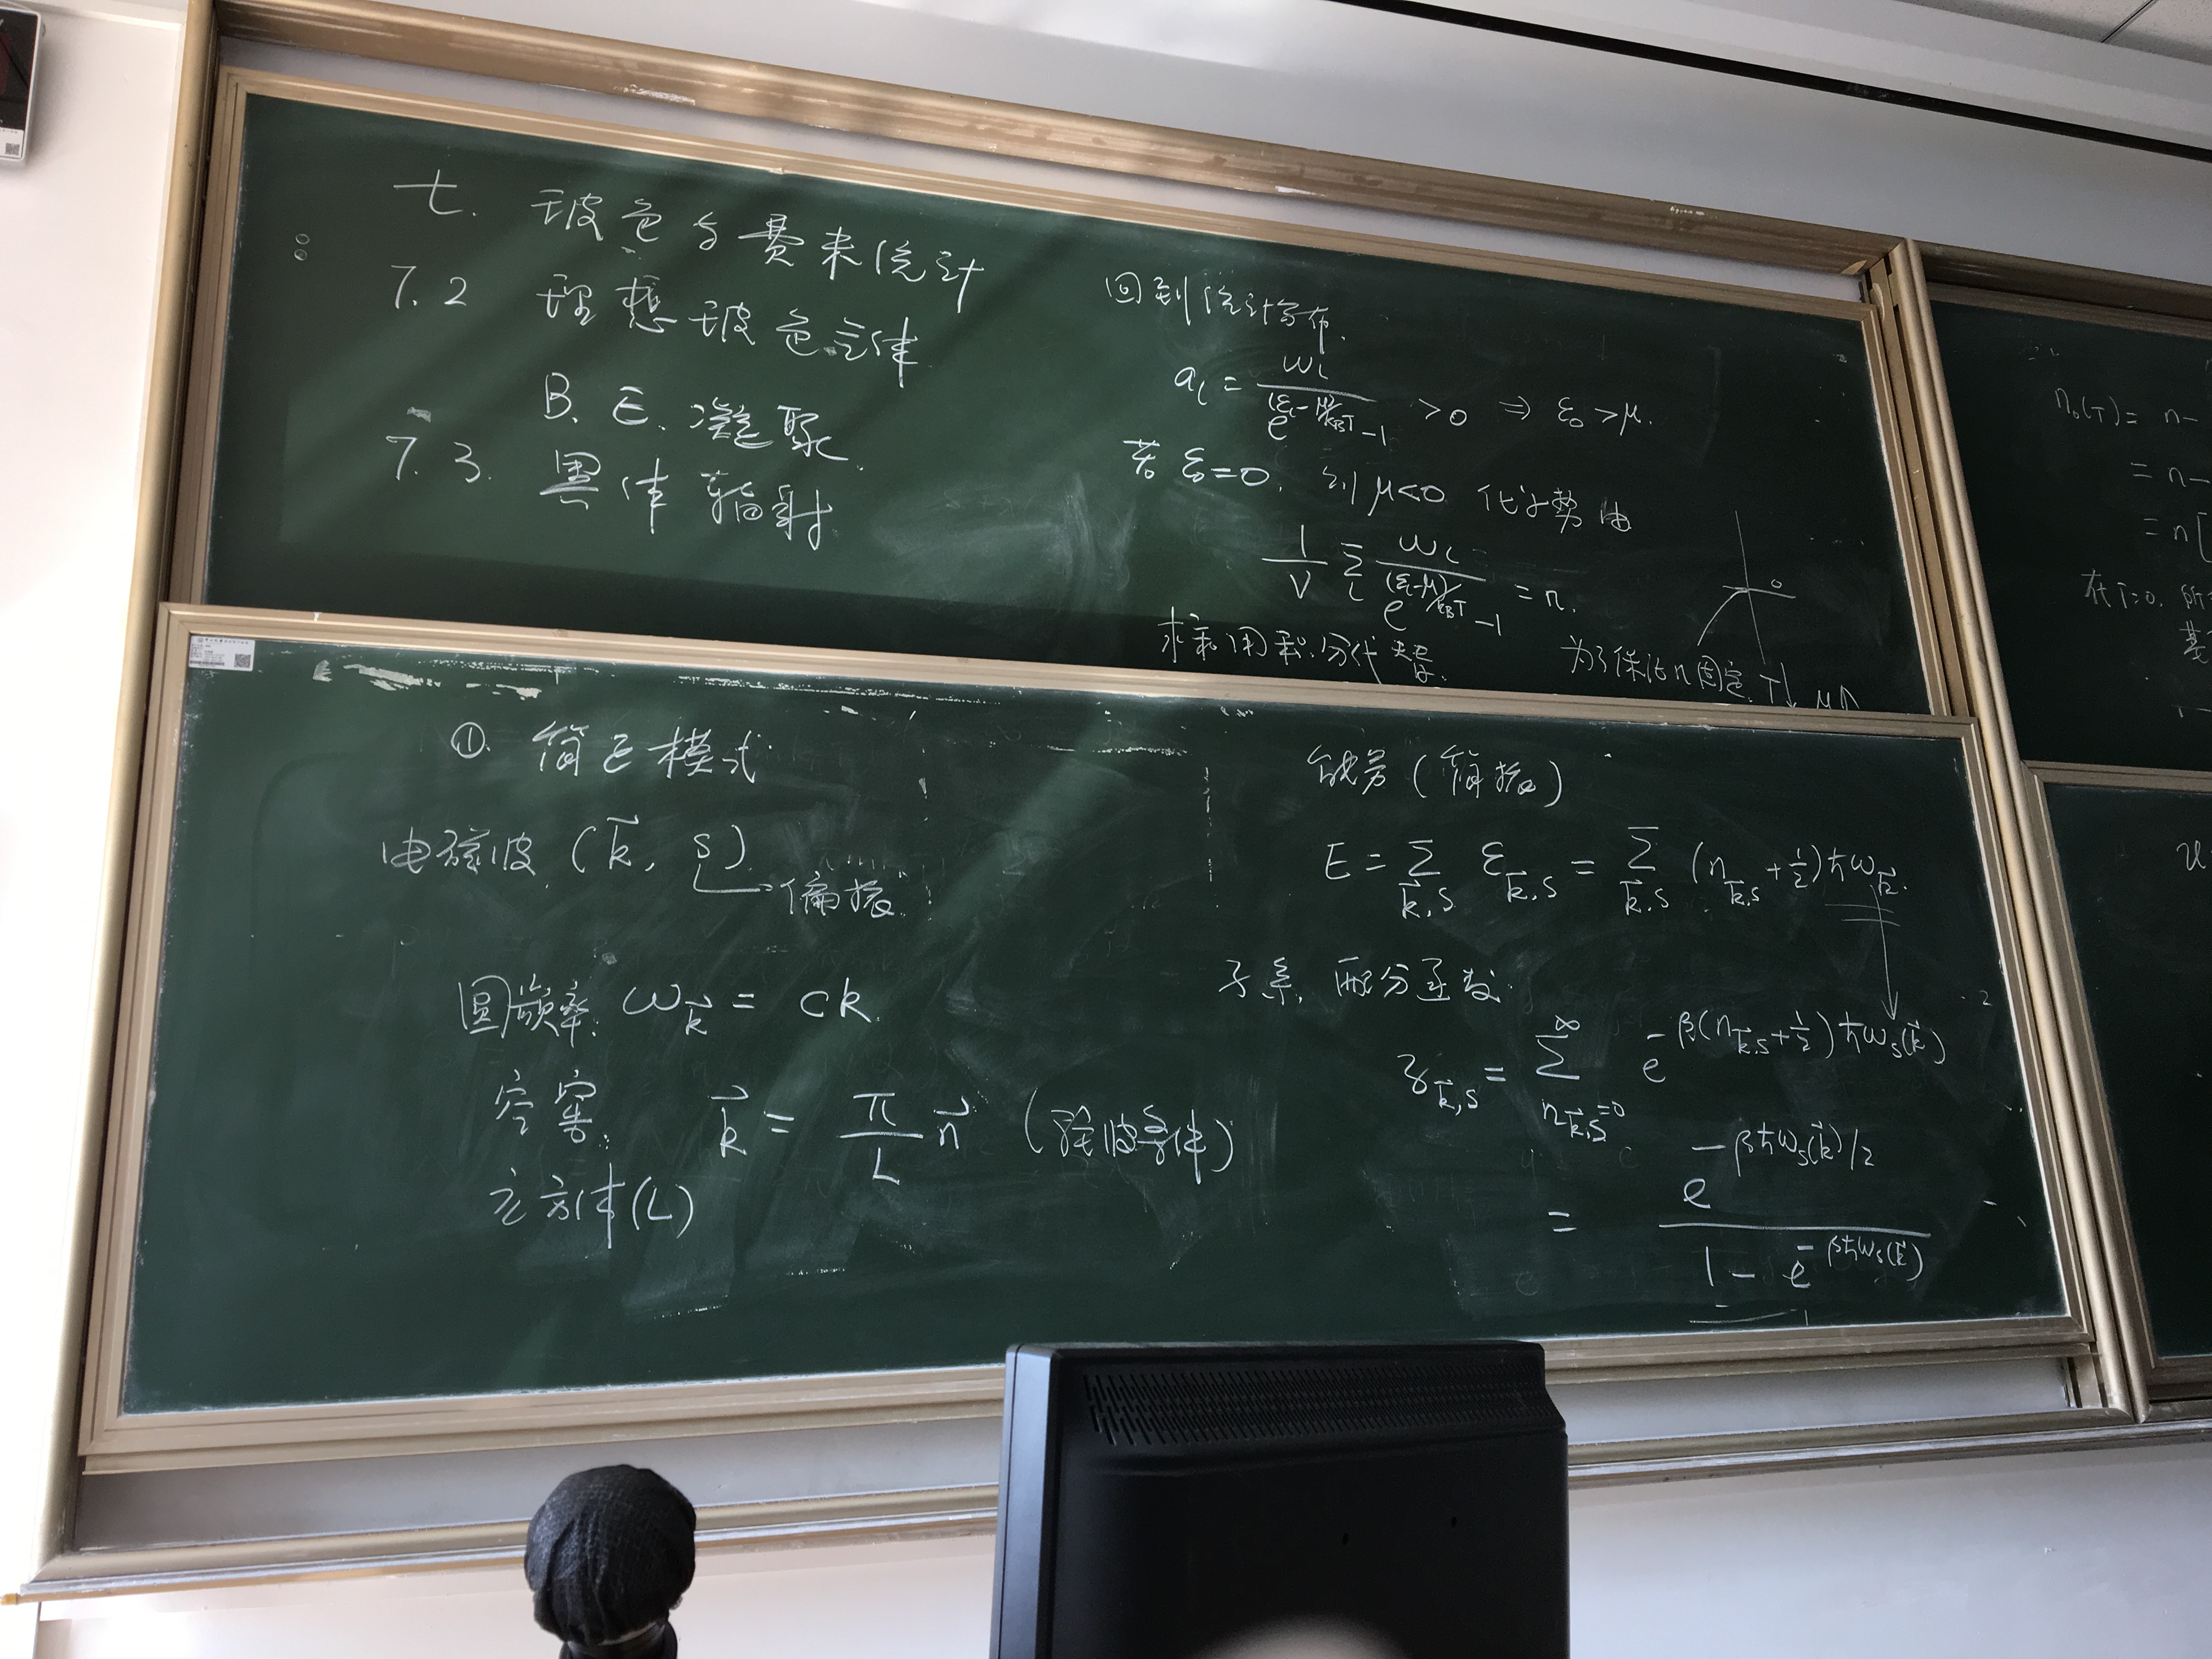 七. 玻色与费米统计
7.2 理想玻色气体
B. E. 凝聚.
7.3. 黑体辐射
回到统计分布.
a_l = ω_l / (e^{(ε_l-μ)/k_BT} -1) >0 ⇒ ε_0 >μ.
若 ε_0=0, 则 μ<0 化学势由
1/V Σ_l ω_l / (e^{(ε_l-μ)/k_BT} -1) = n.
求和用积分代替.
0
为了保证n固定, T↓ μ↑
① 简正模式
电磁波 (k⃗, s)
偏振.
圆频率: ω_k⃗ = ck.
空窖: k⃗ = π/L n⃗ (驻波条件)
立方体(L)
能量 (简振)
E = Σ_{k⃗,s} ε_{k⃗,s} = Σ_{k⃗,s} (n_{k⃗,s} + 1/2) ħω_k⃗.
子系, 配分函数:
z_{k⃗,s} = Σ_{n_{k⃗,s}=0}^{∞} e^{-β(n_{k⃗,s}+1/2)ħω_s(k⃗)}
= e^{-βħω_s(k⃗)/2} / (1 - e^{-βħω_s(k⃗)})
n_0(T) = n-
= n-
= n[
在T=0, 所
基
u